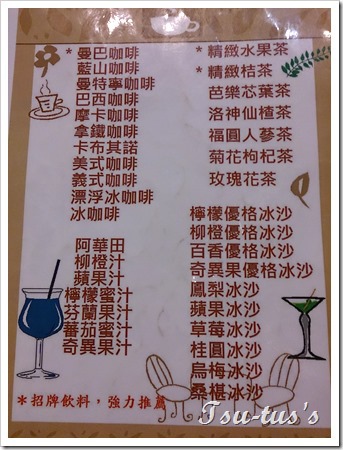 * 曼巴咖啡
藍山咖啡
曼特寧咖啡
巴西咖啡
摩卡咖啡
拿鐵咖啡
卡布其諾
美式咖啡
義式咖啡
漂浮冰咖啡
冰咖啡
阿華田
柳橙汁
蘋果汁
檸檬蜜汁
芬蘭果汁
蕃茄蜜汁
奇異果汁
* 精緻水果茶
* 精緻桔茶
芭樂芯葉茶
洛神仙楂茶
福圓人蔘茶
菊花枸杞茶
玫瑰花茶
檸檬優格冰沙
柳橙優格冰沙
百香優格冰沙
奇異果優格冰沙
鳳梨冰沙
蘋果冰沙
草莓冰沙
桂圓冰沙
烏梅冰沙
桑椹冰沙
* 招牌飲料，強力推薦
Tsu-tus's